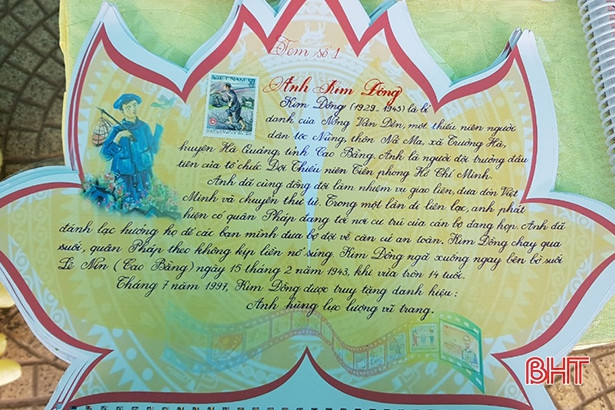 Tem số 1
Anh Kim Đồng
VIỆT NAM
Kim Đồng (1929 - 1943) là bí
danh của Nông Văn Dền, một thiếu niên người
dân tộc Nùng, thôn Nà Mạ, xã Trường Hà,
huyện Hà Quảng, tỉnh Cao Bằng. Anh là người đội trưởng đầu
tiên của tổ chức Đội Thiếu niên Tiền phong Hồ Chí Minh.
Anh đã cùng đồng đội làm nhiệm vụ giao liên, đưa đón Việt
Minh và chuyển thư từ. Trong một lần đi liên lạc, anh phát
hiện có quân Pháp đang tới nơi cư trú của cán bộ đang họp. Anh đã
đánh lạc hướng họ để các bạn mình đưa bộ đội về căn cứ an toàn. Kim Đồng chạy qua
suối, quân Pháp theo không kịp liền nổ súng. Kim Đồng ngã xuống ngay bên bờ suối
Lê Nin (Cao Bằng) ngày 15 tháng 2 năm 1943, khi vừa tròn 14 tuổi.
Tháng 7 năm 1997, Kim Đồng được truy tặng danh hiệu:
Anh hùng lực lượng vũ trang.
BHT